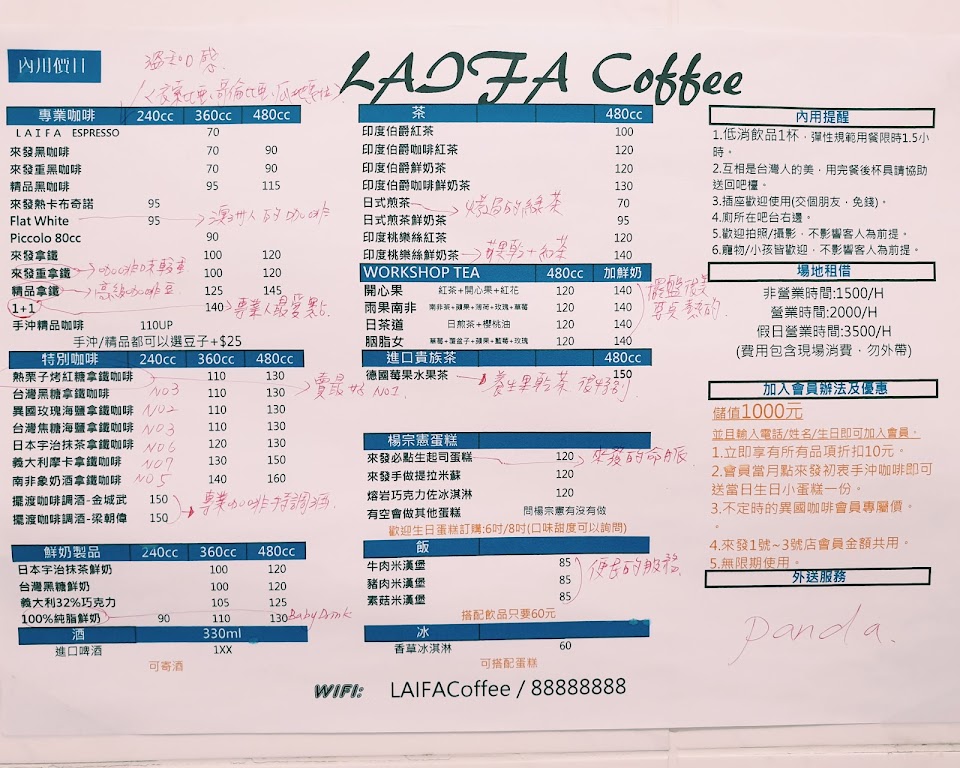 內用價目
LAIFA Coffee
專業咖啡 240cc 360cc 480cc
LAIFA ESPRESSO 70
來發黑咖啡 70 90
來發重黑咖啡 70 90
精品黑咖啡 95 115
來發熱卡布奇諾 95
Flat White 95 澳洲人的咖啡
Piccolo 80cc 90
來發拿鐵 100 120
來發重拿鐵 100 120
精品拿鐵 高級咖啡豆 125 145
1+1 140 專業人最愛點
手沖精品咖啡 110UP
手沖/精品都可以選豆子+$25
特別咖啡 240cc 360cc 480cc
熱栗子烤紅糖拿鐵咖啡 110 130 賣最好 NO1
台灣黑糖拿鐵咖啡 NO3 110 130
異國玫瑰海鹽拿鐵咖啡 NO2 110 130
台灣焦糖海鹽拿鐵咖啡 NO3 110 130
日本宇治抹茶拿鐵咖啡 NO6 120 130
義大利摩卡拿鐵咖啡 NO7 130 150
南非象奶酒拿鐵咖啡 NO5 140 160
擺渡咖啡調酒-金城武 150
擺渡咖啡調酒-梁朝偉 150
鮮奶製品 240cc 360cc 480cc
日本宇治抹茶鮮奶 100 120
台灣黑糖鮮奶 100 120
義大利32%巧克力 105 125
100%純脂鮮奶 90 110 130 Baby Drink
酒 330ml
進口啤酒 1XX
可寄酒
茶 480cc
印度伯爵紅茶 100
印度伯爵咖啡紅茶 120
印度伯爵鮮奶茶 120
印度伯爵咖啡鮮奶茶 130
日式煎茶 70
日式煎茶鮮奶茶 95
印度桃樂絲紅茶 120
印度桃樂絲鮮奶茶 蘋果乾+紅茶 140
WORKSHOP TEA 480cc 加鮮奶
開心果 紅茶+開心果+紅花 120 140
雨果南非 南非茶+蘋果+薄荷+玫瑰+草莓 120 140
日茶道 日煎茶+櫻桃油 120 140
胭脂女 草莓+覆盆子+蘋果+藍莓+玫瑰 120 140
進口貴族茶 480cc
德國莓果水果茶 150
養生果乾茶 很特別
楊宗憲蛋糕
來發必點生起司蛋糕 120
來發手做提拉米蘇 120
熔岩巧克力佐冰淇淋 120
有空會做其他蛋糕 問楊宗憲有沒有做
歡迎生日蛋糕訂購:6吋/8吋(口味甜度可以詢問)
飯
牛肉米漢堡 85
豬肉米漢堡 85 便民的服務
素菇米漢堡 85
搭配飲品只要60元
冰
香草冰淇淋 60
可搭配蛋糕
WIFI: LAIFACoffee / 88888888
內用提醒
1.低消飲品1杯，彈性規範用餐限時1.5小
時。
2.互相是台灣人的美，用完餐後杯具請協助
送回吧檯。
3.插座歡迎使用(交個朋友，免錢)。
4.廁所在吧台右邊。
5.歡迎拍照/攝影，不影響客人為前提。
6.寵物/小孩皆歡迎，不影響客人為前提。
場地租借
非營業時間:1500/H
營業時間:2000/H
假日營業時間:3500/H
(費用包含現場消費，勿外帶)
加入會員辦法及優惠
儲值1000元
並且輸入電話/姓名/生日即可加入會員。
1.立即享有所有品項折扣10元。
2.會員當月點來發初衷手沖咖啡即可
送當日生日小蛋糕一份。
3.不定時的異國咖啡會員專屬價。
。
4.來發1號~3號店會員金額共用。
5.無限期使用。
外送服務
panda.